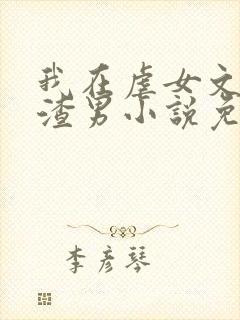 我在虐女文
渣男小說免
李彦琴